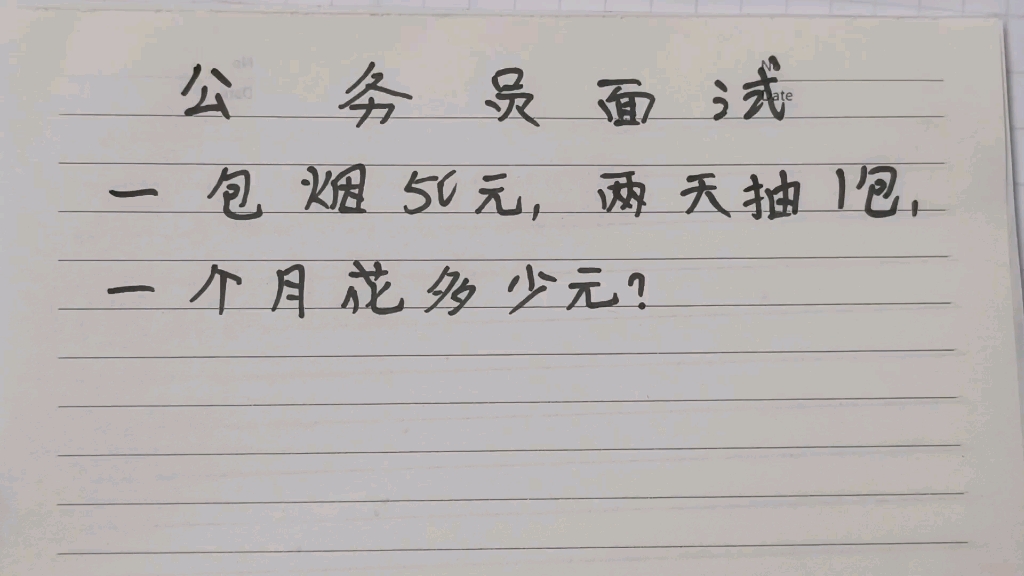 公务员面试
Date
一包烟50元,两天抽1包,
一个月花多少元?